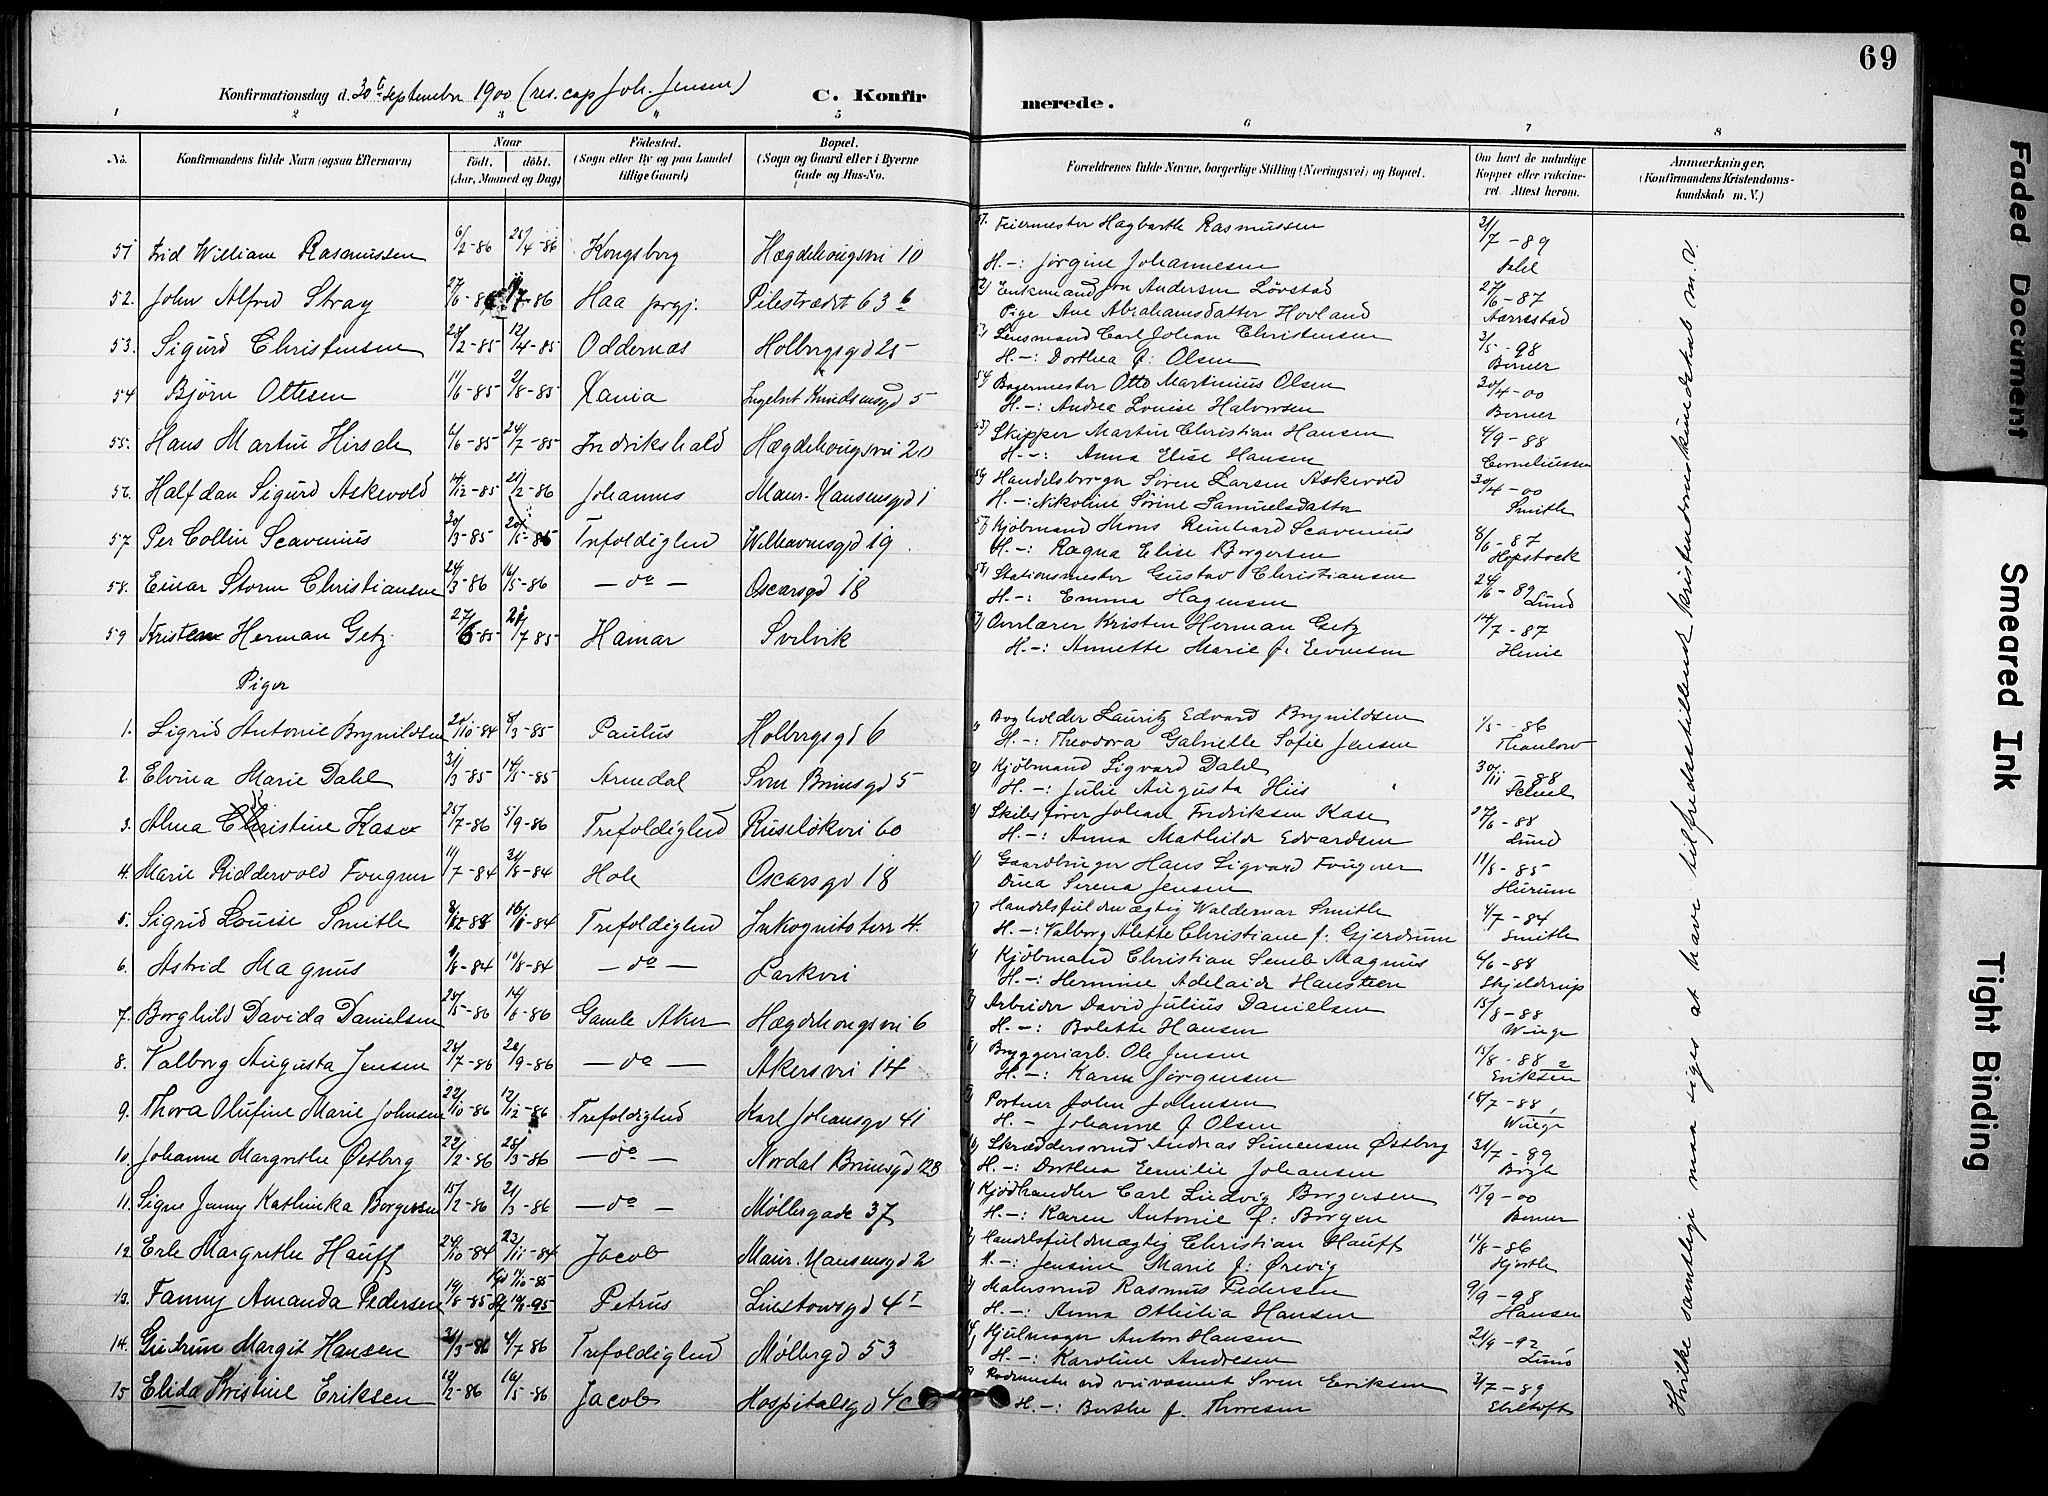 69
Konfirmationsdag d. 30te september 1900 (res. cap Joh. Jensen)
C. Konfirmerede.
1 2 3 4 5 6 7 8
No.
Konfirmandens fulde Navn (ogsaa Efternavn)
Naar
födt, döbt.
(Aar, Maaned og Dag)
Födested.
(Sogn eller By og paa Landet tillige Gaard)
Bopæl.
(Sogn og Gaard eller i Byerne Gade og Hus-No.
Forældrenes fulde Navne, borgerlige Stilling (Næringsvei) og Bopæl.
Om havt de naturlige Kopper eller vaksineret. Attest herom.
Anmærkninger.
(Konfirmandens Kristendomskundskab m. V.)
51 William Rasmussen 6/2-86 25/4-86 Kongsberg Hægdehougsvei 10 Feiermester Hagbarth Rasmussen 31/7-89
H.-: Jørgine Johannesen Dahl
52. John Alfred Stray 27/6-86 7-86 Haa prgj. Pilestrædet 63 b Enkemand Jon Andersen Løvstad 27/6-87
Pige Ane Abrahamsdatter Hovland Aarrestad
53. Sigurd Christensen 28/2-85 12/4-85 Oddernæs Holbergsgd 25 Lensmand Carl Johan Christensen 3/5-98
H.-: Dorthea f: Olsen Berner
54 Bjørn Ottesen 11/6-85 2/8-85 Xania Ingebret Knudsensgd 5 Bagermester Otto Martinius Olsen 30/4-00
H.-: Andrea Louise Halvorsen Berner
55. Hans Martin Hirsch 6/6-85 24/7-85 Fredrikshald Hægdehougsvei 20 Skipper Martin Christian Hansen 4/9-88
H.-: Anna Elise Hansen Corneliussen
56. Halfdan Sigurd Askevold 14/12-85 21/2-86 Johannes Maur. Hansensgd 1 Handelsborger Søren Larsen Askevold 30/4-00
H.-: Nikoline Sørine Samuelsdatter Smith
57. Per Collin Scavenius 30/3-85 20/5-85 Trefoldighed Welhavensgd 19 Kjøbmand Mons Reinhard Scavenius 8/6-87
H.-: Ragna Elise Borgersen Hopstock
58. Einar Storm Christiansen 24/3-86 16/5-86 - do - Oscarsgd 18 Stationsmester Gustav Christiansen 24/6-89
H.-: Emma Hagensen Lund
59 Kristen Herman Getz 27/6-85 21/7-85 Hamar Svelvik Overlærer Kristen Herman Getz 14/7-87
H.-: Annette Marie f: Evensen Henie
Piger
1. Sigrid Antonie Brynildsen 20/10-84 8/3-85 Paulus Holbergsgd 6 Bogholder Lauritz Edvard Brynildsen 1/5-86
H.-: Theodora Gabrielle Sofie Jensen Thaulow
2. Elvina Marie Dahl 31/3-85 14/5-85 Arendal Sven Brunsgd 5 Kjøbmand Sigvard Dahl 30/11-88
H.-: Julie Augusta Hiis Scheel
3. Alma Christine Kase 25/7-86 5/9-86 Trefoldighed Ruseløkvei 60 Skibsfører Johan Fredriksen Kase 27/6-88
H.-: Anna Mathilde Edvardsen Lund
4. Marie Riddervold Fougner 11/7-84 31/8-84 Hole Oscarsgd 18 Gaardbruger Hans Sigvard Fougner 11/8-85
Dina Serena Jensen Hurum
5. Sigrid Louise Smith Trefoldighed Inkognitoterr 4. Handelsfuldmægtig Waldemar Smith 4/7-84
H.-: Valborg Alette Christiane f: Gjerdrum Smith
6. Astrid Magnus 9/8-84 10/8-84 - do - Parkvei Kjøbmand Christian Semb Magnus 4/6-88
H.-: Hermine Adelaide Hansteen Skjelderup
7. Borghild Davida Danielsen 25/5-86 14/6-86 Gamle Aker Hægdehougsvei 6 Arbeider David Julius Danielsen 15/8-88
H.-: Bolette Hansen Winge
8. Valborg Augusta Jensen 28/7-86 26/9-86 - do - Akersvei 14 Bryggeriarb. Ole Jensen 15/8-88
H.-: Karen Jørgensen Eriksen
9. Thora Olufine Marie Johnsen 22/10-86 12/12-86 Trefoldighed Karl Johansgd 41 Portner John Johnsen 18/7-88
H.- Johanne f Olsen Winge
10. Johanne Margrethe Østberg 22/2-86 28/3-86 - do - Nordal Brunsgd 12B Skræddersvend Andreas Simensen Østberg 31/7-89
H.-: Dorthea Emilie Johansen Bøgh
11. Signe Jenny Kathinka Borgersen 15/2-86 21/3-86 - do - Møllergade 37 Kjødhandler Carl Ludvig Borgersen 15/9-00
H.-: Karen Antonie f: Borgen Berner
12 Erle Margrethe Hauff 24/10-84 23/11-84 Jacob Maur. Hansensgd 2 Handelsfuldmægtig Christian Hauff 11/8-86
H.-: Jensine Marie f: Ørevig Hjorth
13. Fanny Amanda Pedersen 19/8-85 Petrus Linstowsgd 4 I Malersvend Rasmus Pedersen 9/9-98
H.-: Anna Othilia Hansen Hansen
14. Gudrun Margit Hansen 31/3-86 4/7 86 Trefoldighed Møllergd 53 Hjulmager Anton Hansen 21/9-92
H.-: Karoline Andresen Lund
15 Elida Kristine Eriksen 19/2-86 16/5-86 Jacob Hospitalsgd 4c Rodemester ved veivæsenet Sven Eriksen 3/7-89
H.-: Berthe f. Thoresen Eteltoft
Hvilke samtlige maa siges at have tilfredsstillende kristendomskundskab m. V.
Faded Document
Smeared Ink
Tight Binding